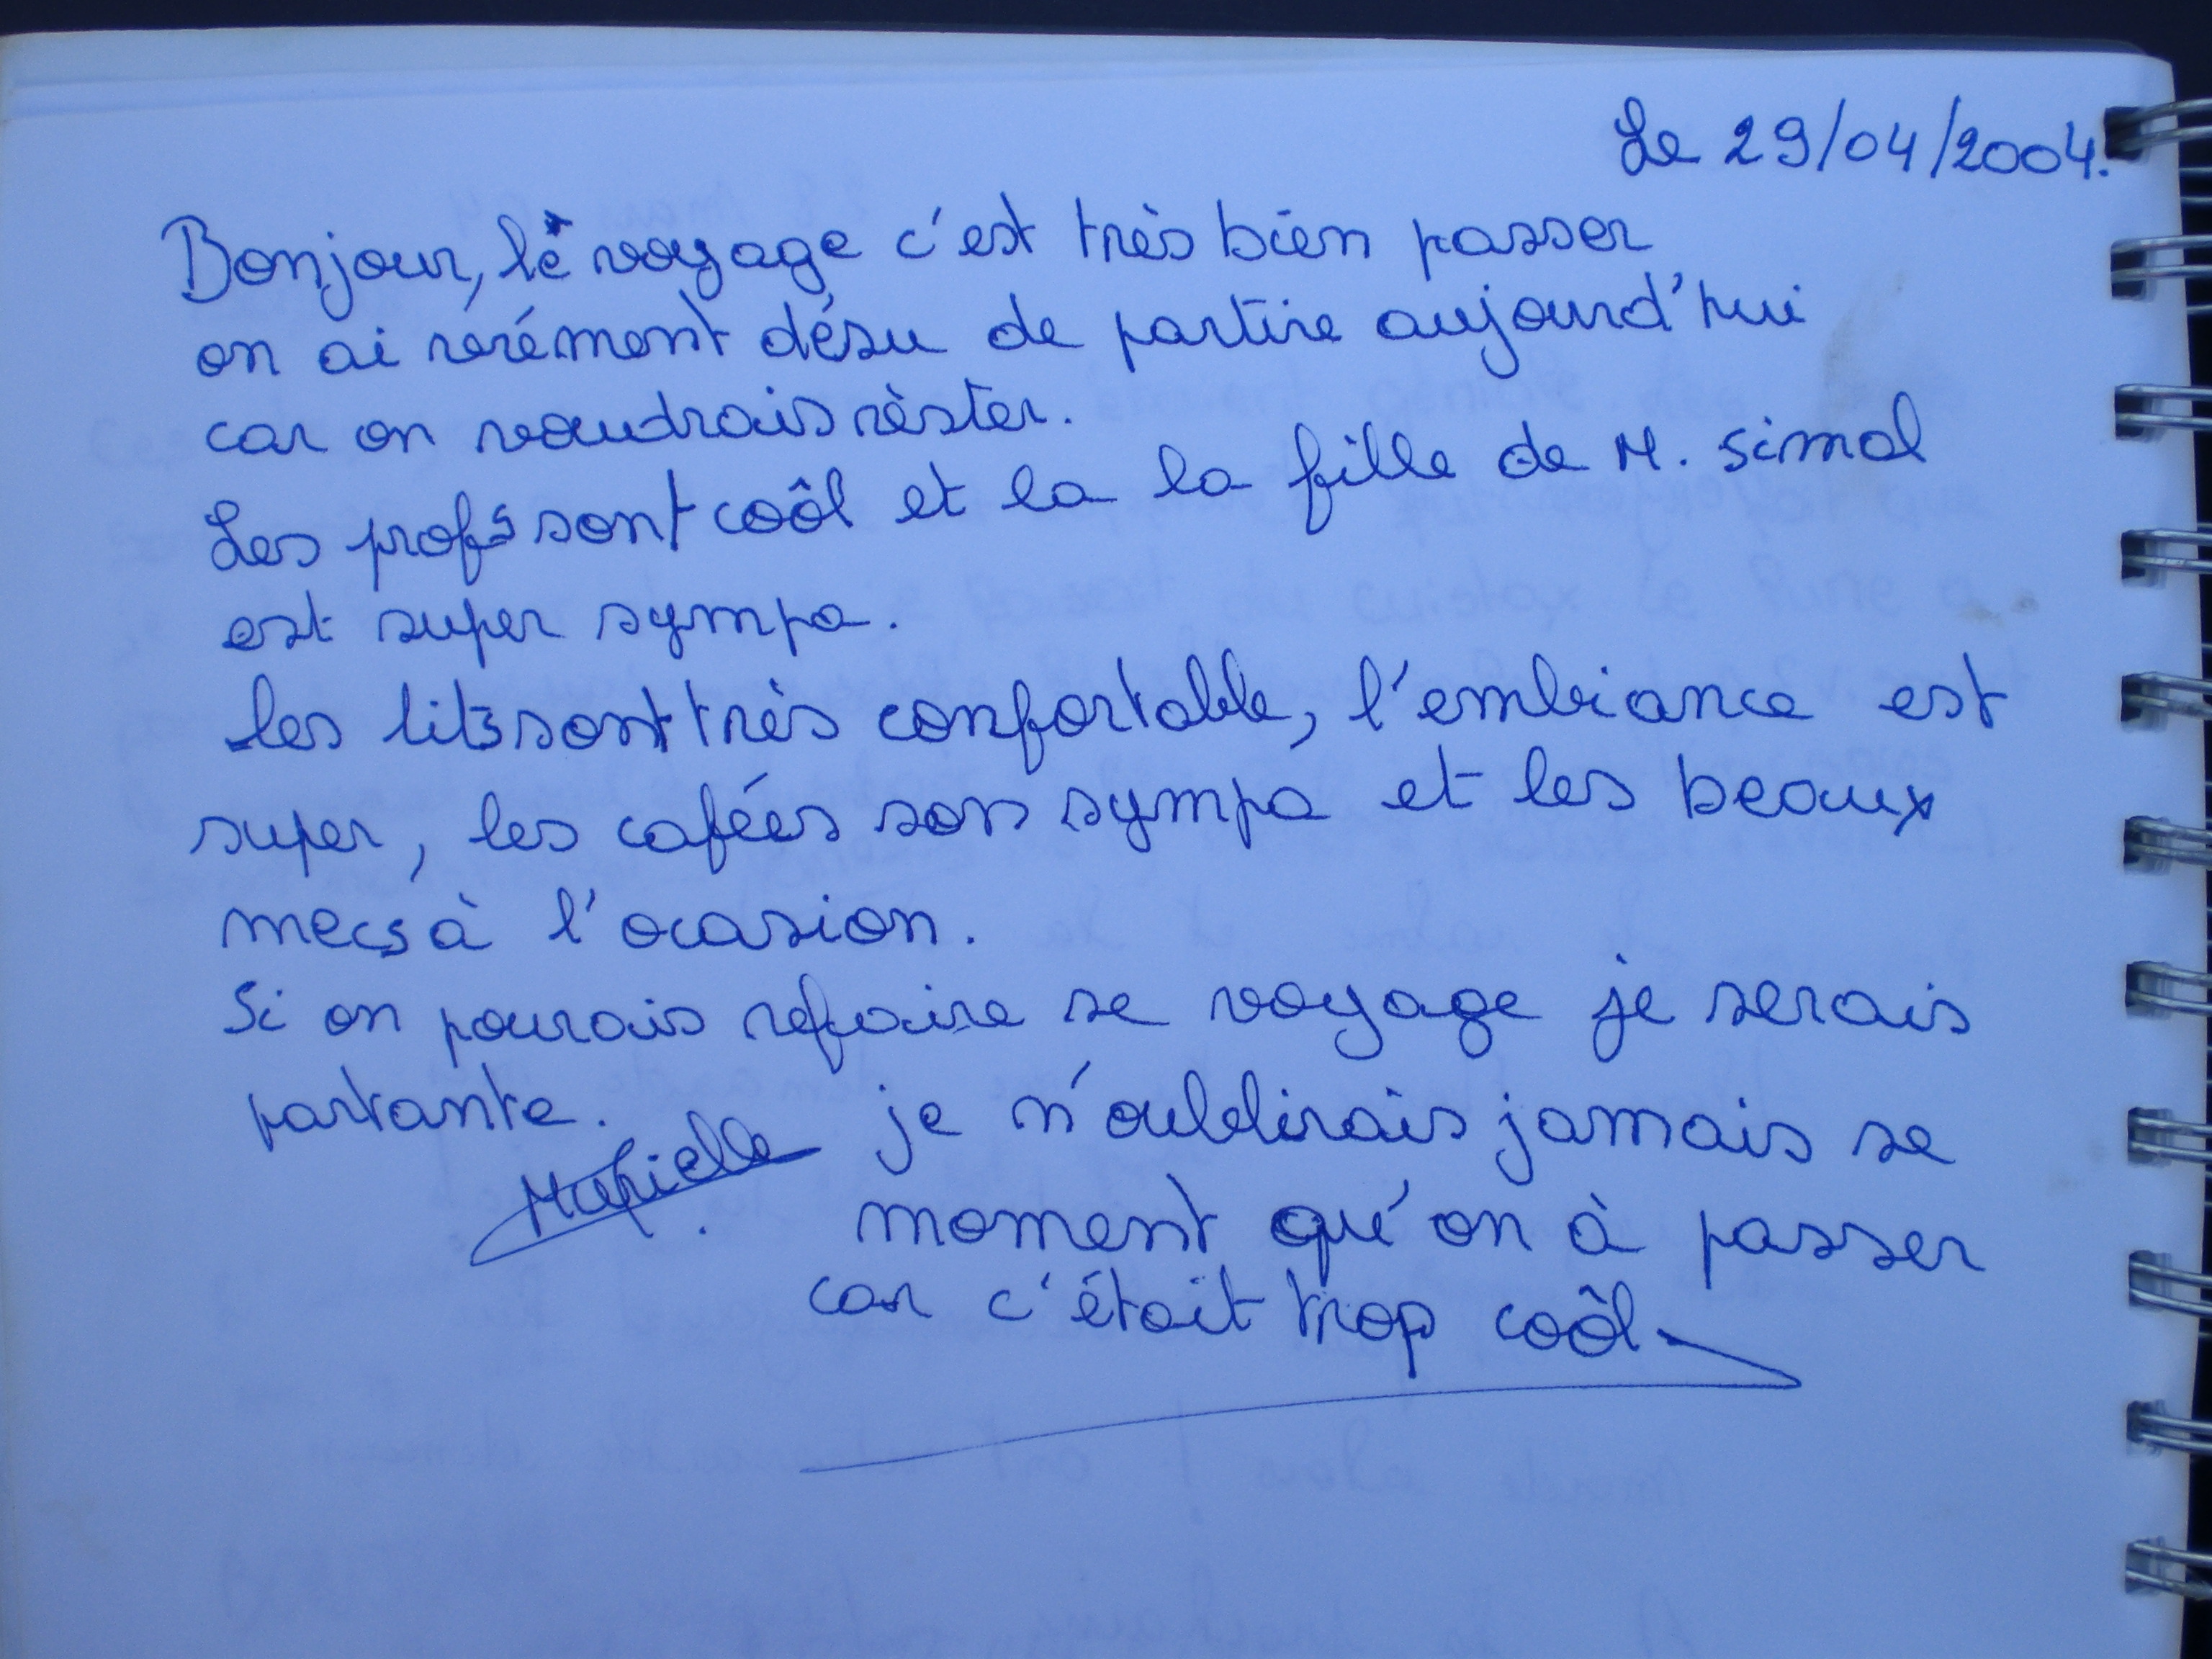 Le 29/04/2004.
Bonjour, le voyage c'est très bien passer
on ai vérément désu de partire aujourd'hui
car on voudrais rèster.
Les profs sont coôl et la la fille de M. simal
est super sympa.
les lits sont très confortable, l'embiance est
super, les cafées sons sympa et les beaux
mecs à l'ocasion.
Si on pourais refaire se voyage je serais
partante.
je n'oublirais jamais se
moment qu'on à passer
car c'était trop coôl